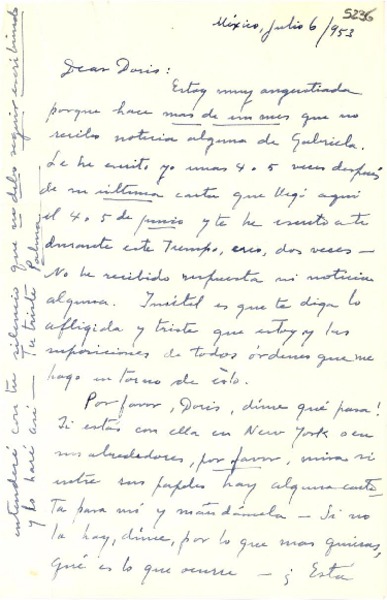 5236
México, Julio 6/953
Dear Doris:
Estoy muy angustiada
porque hace mas de un mes que no
recibo noticia alguna de Gabriela.
Le he escrito yo unas 4 o 5 veces después
de su última carta que llegó aquí
el 4 o 5 de junio y te he escrito a ti
durante este Tiempo, creo, dos veces —
No he recibido respuesta ni noticia
alguna. Inútil es que te diga lo
afligida y triste que estoy y las
suposiciones de todos órdenes que me
hago en torno de ésto.
Por favor, Doris, dime qué pasa!
Si estás con ella en New York o en
sus alrededores, por favor, mira si
entre sus papeles hay alguna carti-
ta para mí y mándamela — Si no
la hay, dime, por lo que mas quieras,
Qué es lo que ocurre — ¿ Está
entenderé con tu silencio que no debo seguir escribiendo
y lo haré así — Tu triste Palma